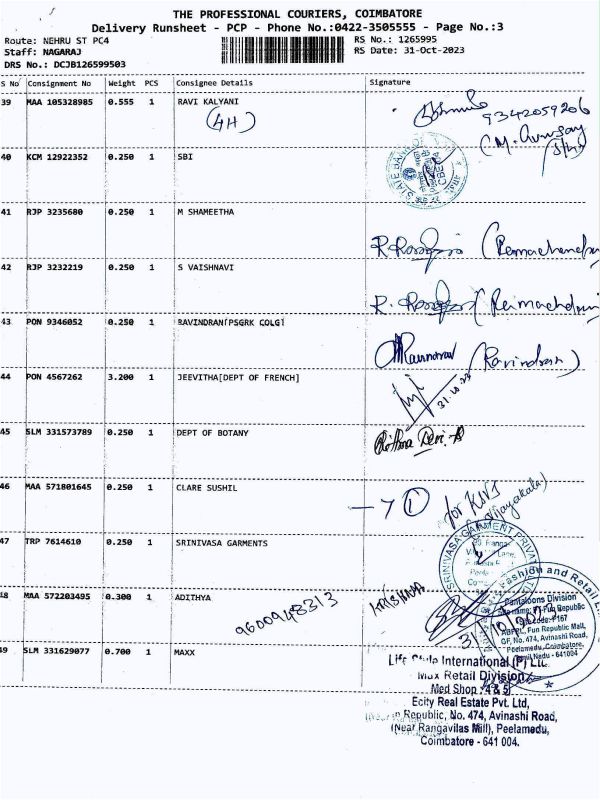 THE PROFESSIONAL COURIERS, COIMBATORE
Delivery Runsheet - PCP - Phone No.:0422-3505555 - Page No.:3
Route: NEHRU ST PC4
RS No.: 1265995
Staff: NAGARAJ
RS Date: 31-Oct-2023
DRS No.: DCJB126599503
S No Consignment No Weight PCS Consignee Details Signature
39 MAA 105328985 0.555 1 RAVI KALYANI
(4H)
9342059206
40 KCM 12922352 0.250 1 SBI
STATE BANK OF
41 RJP 3235680 0.250 1 M SHAMEETHA
42 RJP 3232219 0.250 1 S VAISHNAVI
43 PON 9346052 0.250 1 RAVINDRAN[PSGRK COLG]
(Ravindran)
44 PON 4567262 3.200 1 JEEVITHA[DEPT OF FRENCH]
31.10.23
45 SLM 331573789 0.250 1 DEPT OF BOTANY
46 MAA 571801645 0.250 1 CLARE SUSHIL
for
47 TRP 7614610 0.250 1 SRINIVASA GARMENTS
SRINIVASA GARMENT PRIVATE
48 MAA 572203495 0.300 1 ADITHYA
9600948313
Fashion and Retail
Pantaloons Division
Fun Republic
ABFRL, Fun Republic Mall,
GF, No. 474, Avinashi Road,
Peelamedu, Coimbatore,
Tamil Nadu - 641004
49 SLM 331629077 0.700 1 MAXX
Life Style International (P) Ltd.
Max Retail Division
Med Shop 4 & 5
Ecity Real Estate Pvt. Ltd,
Republic, No. 474, Avinashi Road,
(Near Rangavilas Mill), Peelamedu,
Coimbatore - 641 004.